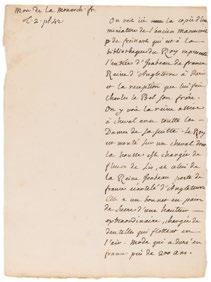 Mon. de la Monarch. fr.
t. 2. pl. 42
On voit icy la copie d'un
miniature de l'ancien manuscrit
de froissart qui est à la
bibliotheque du Roy represente
l'entrée d'Isabeau de france
Reine d'Angleterre à Paris
et la reception que luy fit
Charles le Bel son frere.
On y voit la reine assise
à cheval avec toutes les
Dames de sa suitte. Le Roy
est monté sur un cheval dont
la housse est chargée de
fleurs de Lis, et celui de
la Reine Isabeau porte de
france écartelé d'Angleterre
Elle a un bonnet en pain
de Sucre d'une hauteur
extraordinaire, chargée de
dentelles qui flottent en
l'air. Mode qui a duré en
france près de 200 ans.